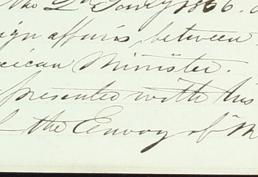 the 2d Jany 1866.
eign affairs, between
xican Minister.
presented with his
the Envoy of M